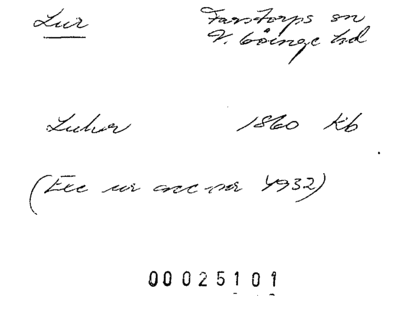 Lur Farstorps sn
V. Göinge hd
Luhr 1860 Kb
(Exc ur acc nr 4932)
00025101